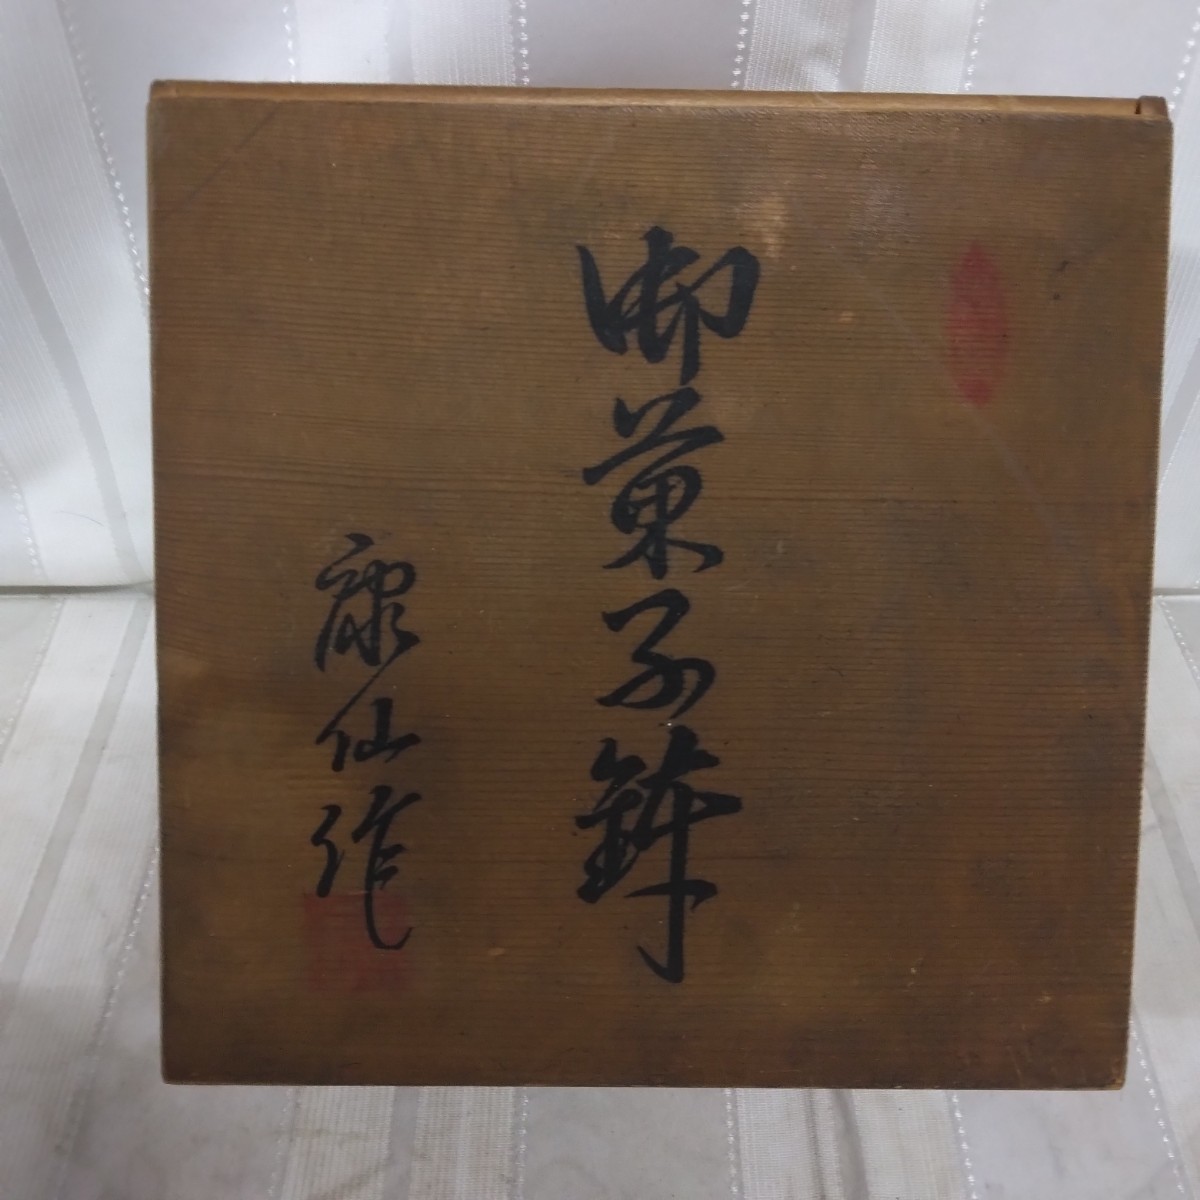 御菓子鉢
康仙作